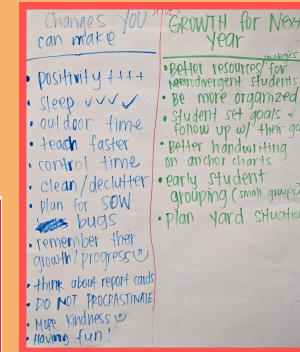 Changes YOU
can make
• positivity ++++
• sleep ✓✓✓
• outdoor time
• teach faster
• control time
• clean/declutter
• plan for SDW
bugs
• remember their
growth/progress ☺
• think about report cards
• DO NOT PROCRASTINATE
• More kindness ☺
• Having fun!
GROWTH for Next
Year
• Better resources for
neurodivergent students
• Be more organized
• Student set goals &
follow up w/ their
• Better handwriting
on anchor charts
• early student
grouping (small groups
• plan yard situation